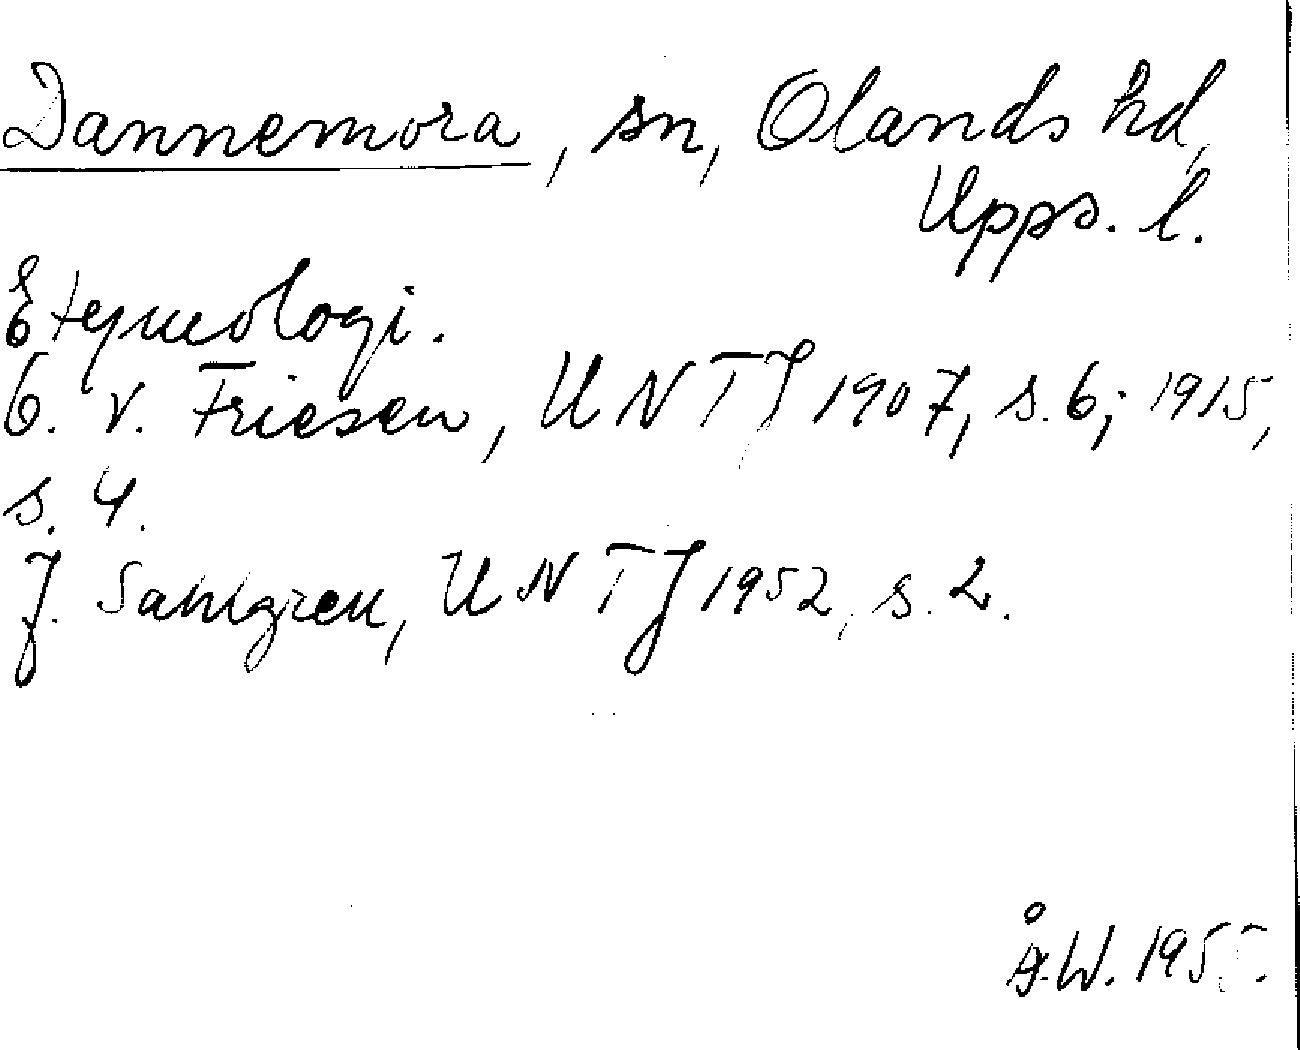 Dannemora, sn, Olands hd,
Upps. l.
Etymologi.
O. v. Friesen, UNTJ 1907, s. 6; 1915,
s. 4.
J. Sahlgren, UNTJ 1952, s. 2.
Å.W. 1955.